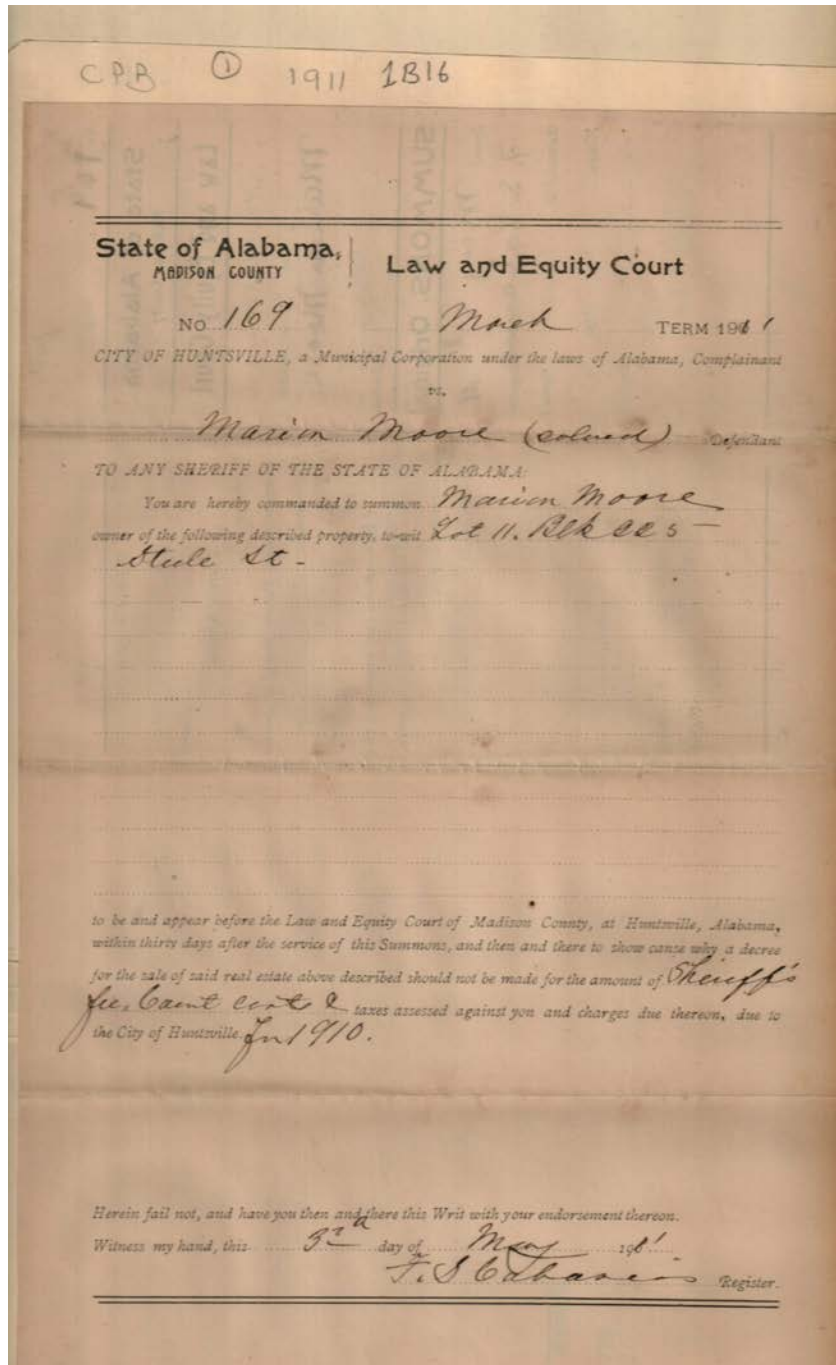 CPB ① 1911 1B16
State of Alabama,
MADISON COUNTY
Law and Equity Court
No 169 March TERM 1911
CITY OF HUNTSVILLE, a Municipal Corporation under the laws of Alabama, Complainant
vs.
Marion Moore (colored) Defendant
TO ANY SHERIFF OF THE STATE OF ALABAMA:
You are hereby commanded to summon Marion Moore
owner of the following described property, to-wit Lot 11. Blk
St -
to be and appear before the Law and Equity Court of Madison County, at Huntsville, Alabama,
within thirty days after the service of this Summons, and then and there to show cause why a decree
for the sale of said real estate above described should not be made for the amount of Sheriff's
fee, Court costs & taxes assessed against you and charges due thereon, due to
the City of Huntsville For 1910.
Herein fail not, and have you then and there this Writ with your endorsement thereon.
Witness my hand, this 3rd day of May 1911
F. S. Cabaniss Register.